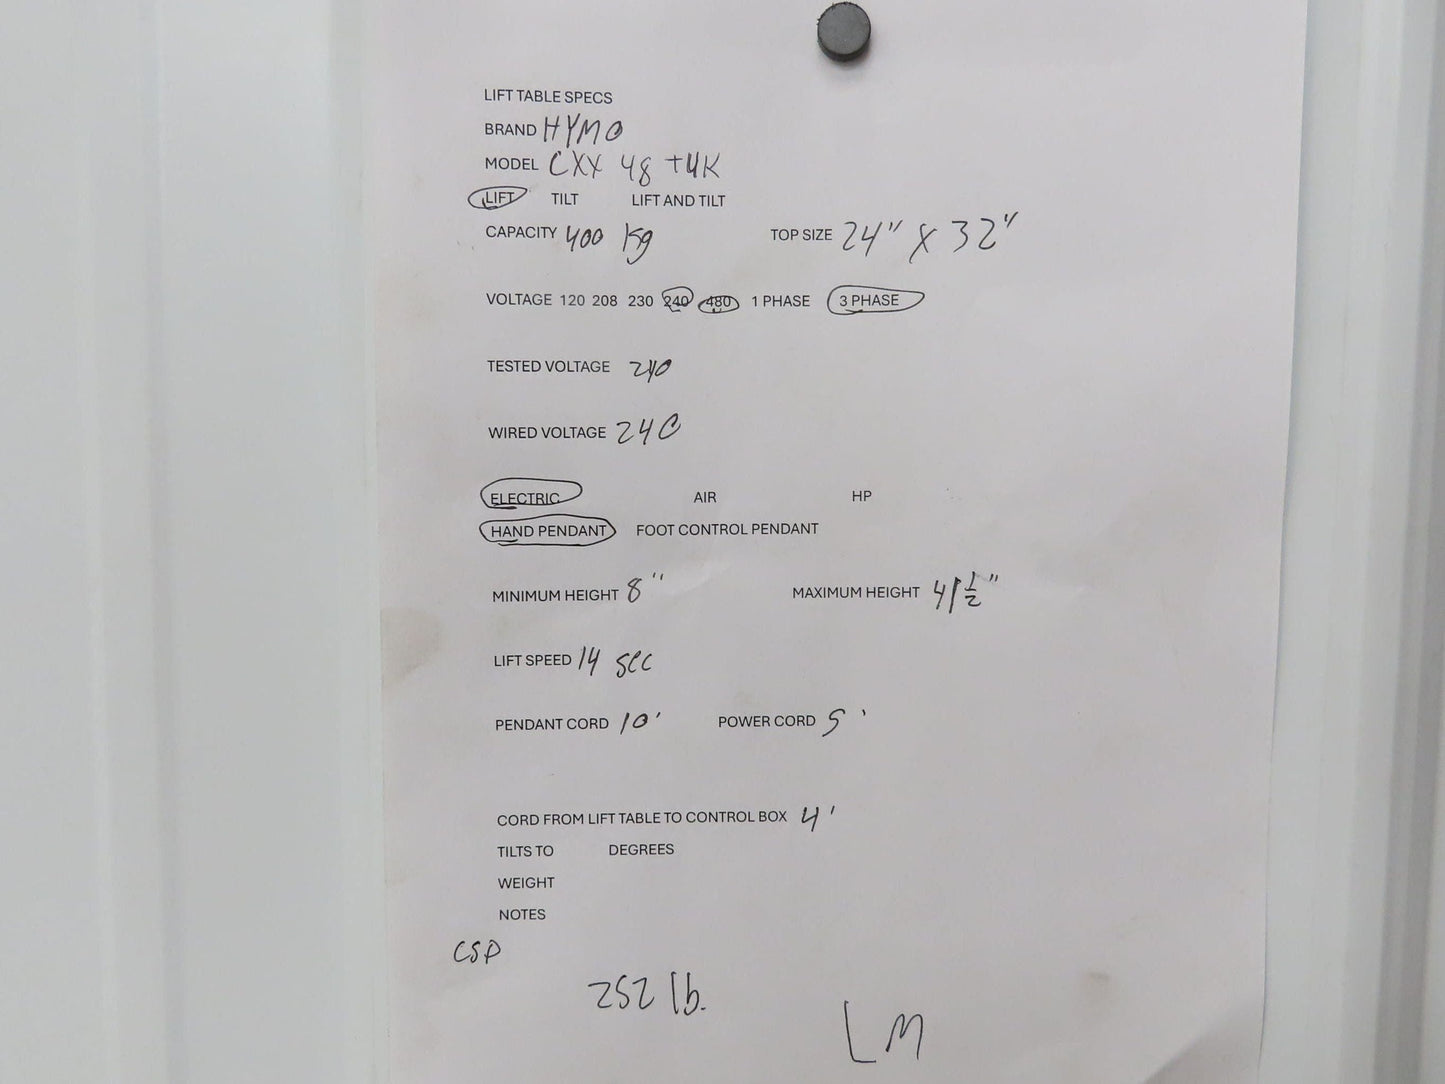 LIFT TABLE SPECS
BRAND HYMO
MODEL CXX 48 +4K
LIFT TILT LIFT AND TILT
CAPACITY 400 Kg TOP SIZE 24" X 32"
VOLTAGE 120 208 230 240 480 1 PHASE 3 PHASE
TESTED VOLTAGE 240
WIRED VOLTAGE 240
ELECTRIC AIR HP
HAND PENDANT FOOT CONTROL PENDANT
MINIMUM HEIGHT 8" MAXIMUM HEIGHT 41 1/2"
LIFT SPEED 14 sec
PENDANT CORD 10' POWER CORD 5'
CORD FROM LIFT TABLE TO CONTROL BOX 4'
TILTS TO DEGREES
WEIGHT
NOTES
CSP
252 lb.
LM